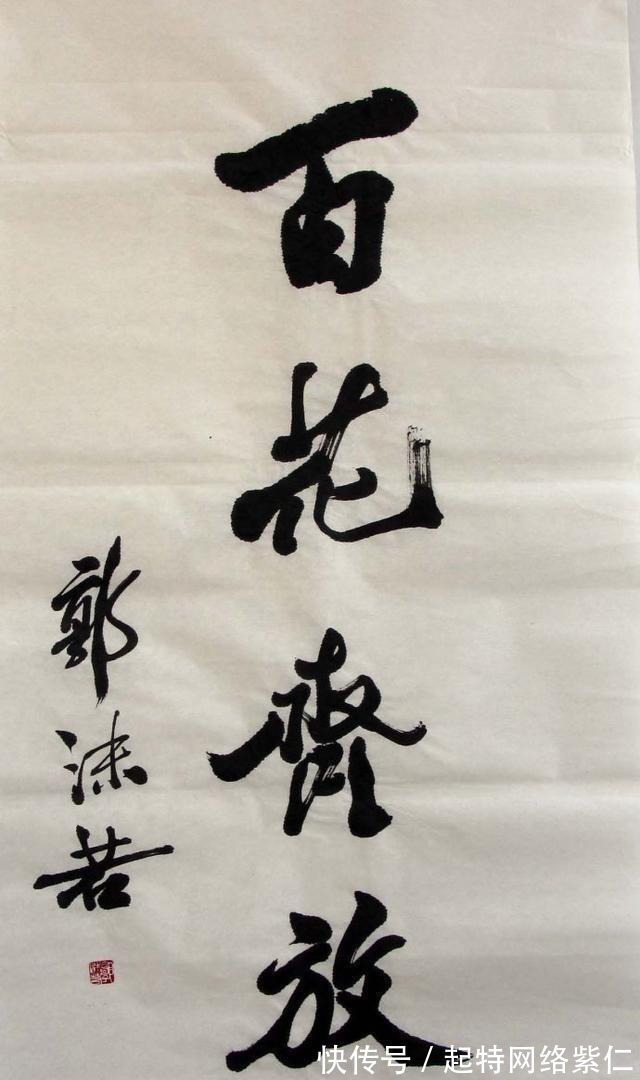 百花齊放
郭沫若
快传号/起特网络紫仁